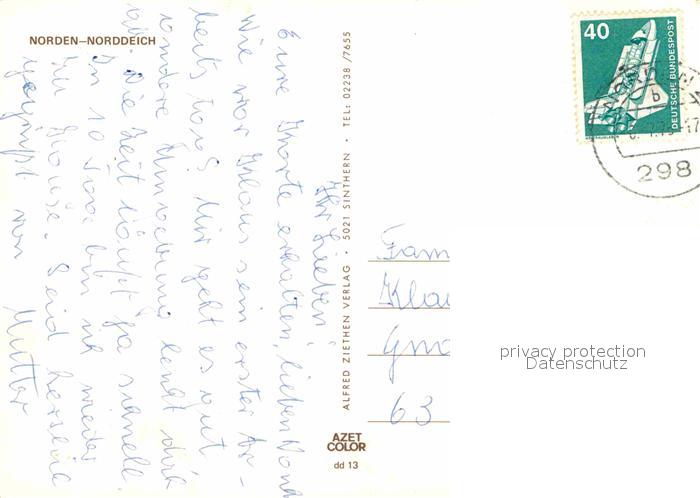 NORDEN–NORDDEICH
Ihr Lieben!
Eure Karte erhalten, lieben Dank
Wie war Klaus sein erster Ar-
beits tag? Mir geht es gut
andere Umgebung lenkt dich
ab. Die Zeit läuft ja schnell
In 10 Tage bin ich wieder
zu Hause. Seid herzlich
gegrüßt von
Mutter
ALFRED ZIETHEN VERLAG · 5021 SINTHERN · TEL: 02238 /7655
AZET
COLOR
dd 13
40
DEUTSCHE BUNDESPOST
b
298
Fam
Klau
Gmo
63
privacy protection
Datenschutz